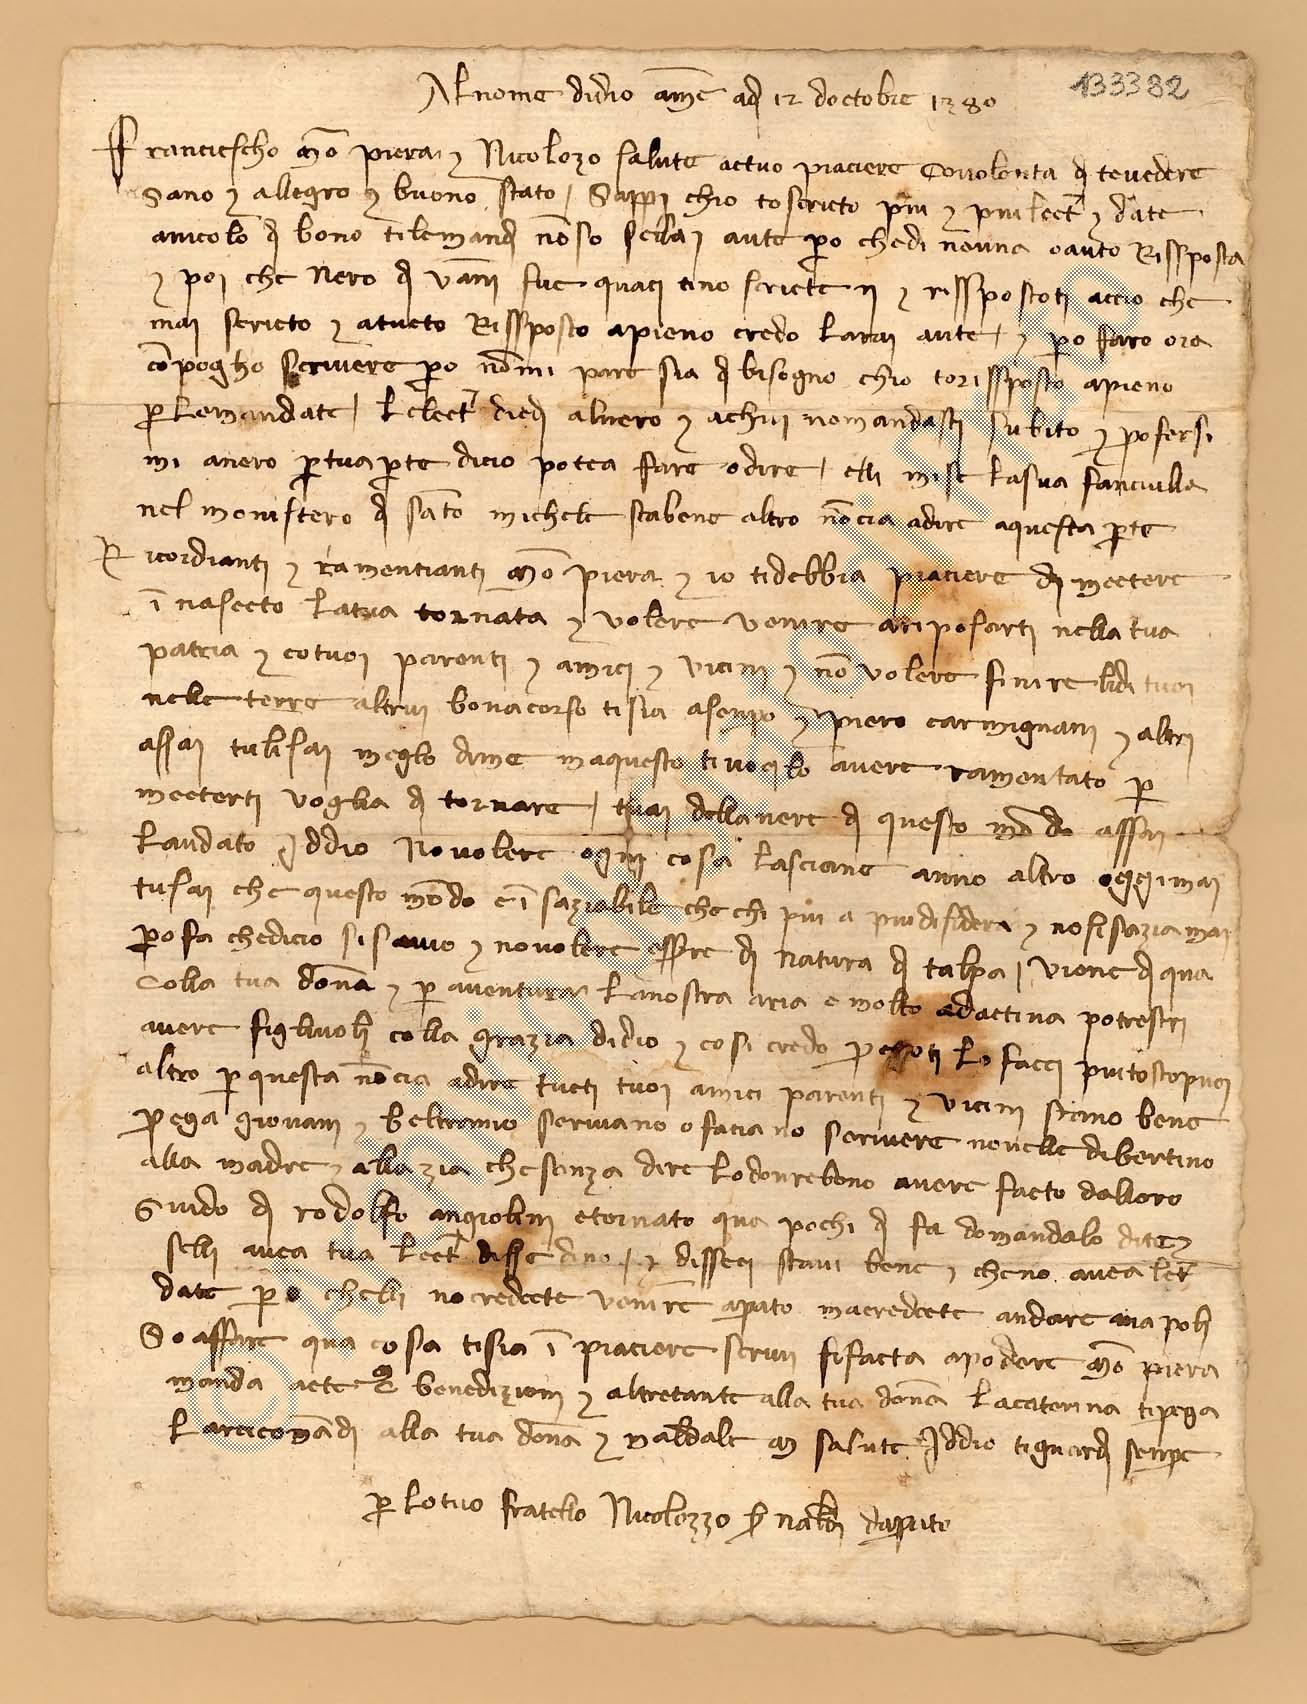 Al nome didio ame ad 12 doctobre 1380
133382
Franciescho mo piera e Nicolozo salute actuo piaciere con volonta di tevedere
Sano e allegro e buono stato / Sappi chio to scricto piu e piu lect e date
anicolo di bono tilemandi non so sella i aute po chedi neuna o auto Rissposta
e poi che Nero di vanni fue quaci tino scricte ij e rissposto ti accio che
mai scricto e atucto Rissposto apieno credo larai aute / e po faro ora
con pogho scrivere po non mi pare sia di bisogno chio to rissposto apieno
p lemandate / le lect diedi alnero e achui nemandasti subito e profersi
mi anero p tua pte dicio potea fare odire / elli mise lasua fanciulla
nel monistero di santo michele sta bene altro non cia adire aquesta pte
Ricordianti e ramentianti mo piera e io tidebbia piaciere di mectere
in nasecto la tua tornata e volere venire ariposarti nella tua
patria e co tuoi parenti e amici e vicini e non volere finire lidi tuoi
nelle terre altrui bonacorso ti sia asenpo e piero carmignani e altri
assai tulisai meglo dime maquesto tivoglo avere ramentato p
mecterti voglia di tornare / tuai dellavere di questo mondo assai
laudato Iddio No volere ogni cosa lasciane anno altro oggimai
tusai che questo mondo e insaziabile che chi piu a piu disidera e nosi sazia mai
po fa chedicio si savio e no volere essere di natura di talpa / viene di qua
colla tua donna e p aventura lanostra aria e molto adactiva potresti
avere figliuoli colla grazia didio e cosi credo lo facci piutosto puoi
altro p questa non cia adire tucti tuoi amici parenti e vicini stano bene
pega giovani e beltramo scrivano o faciano scrivere novelle dibertino
alla madre e alla zia che sanza dire lo dourebono avere facto dalloro
Guido di rodolfo angiolini e tornato qua pochi di fa domandalo dite e
selli avea tua lect disse dino / e disseci stavi bene e cheno avea let
date po chelli no credecte venire aprato macredecte andare anapoli
So affare qua cosa tisia in piaciere scrivi sifacta apodere mo piera
manda acte benedizioni e altretante alla tua donna lacaterina tipega
laracicomandi alla tua donna e salute Iddio tiguardi senpe
p lo tuo fratello Nicolozzo di naldi daprato